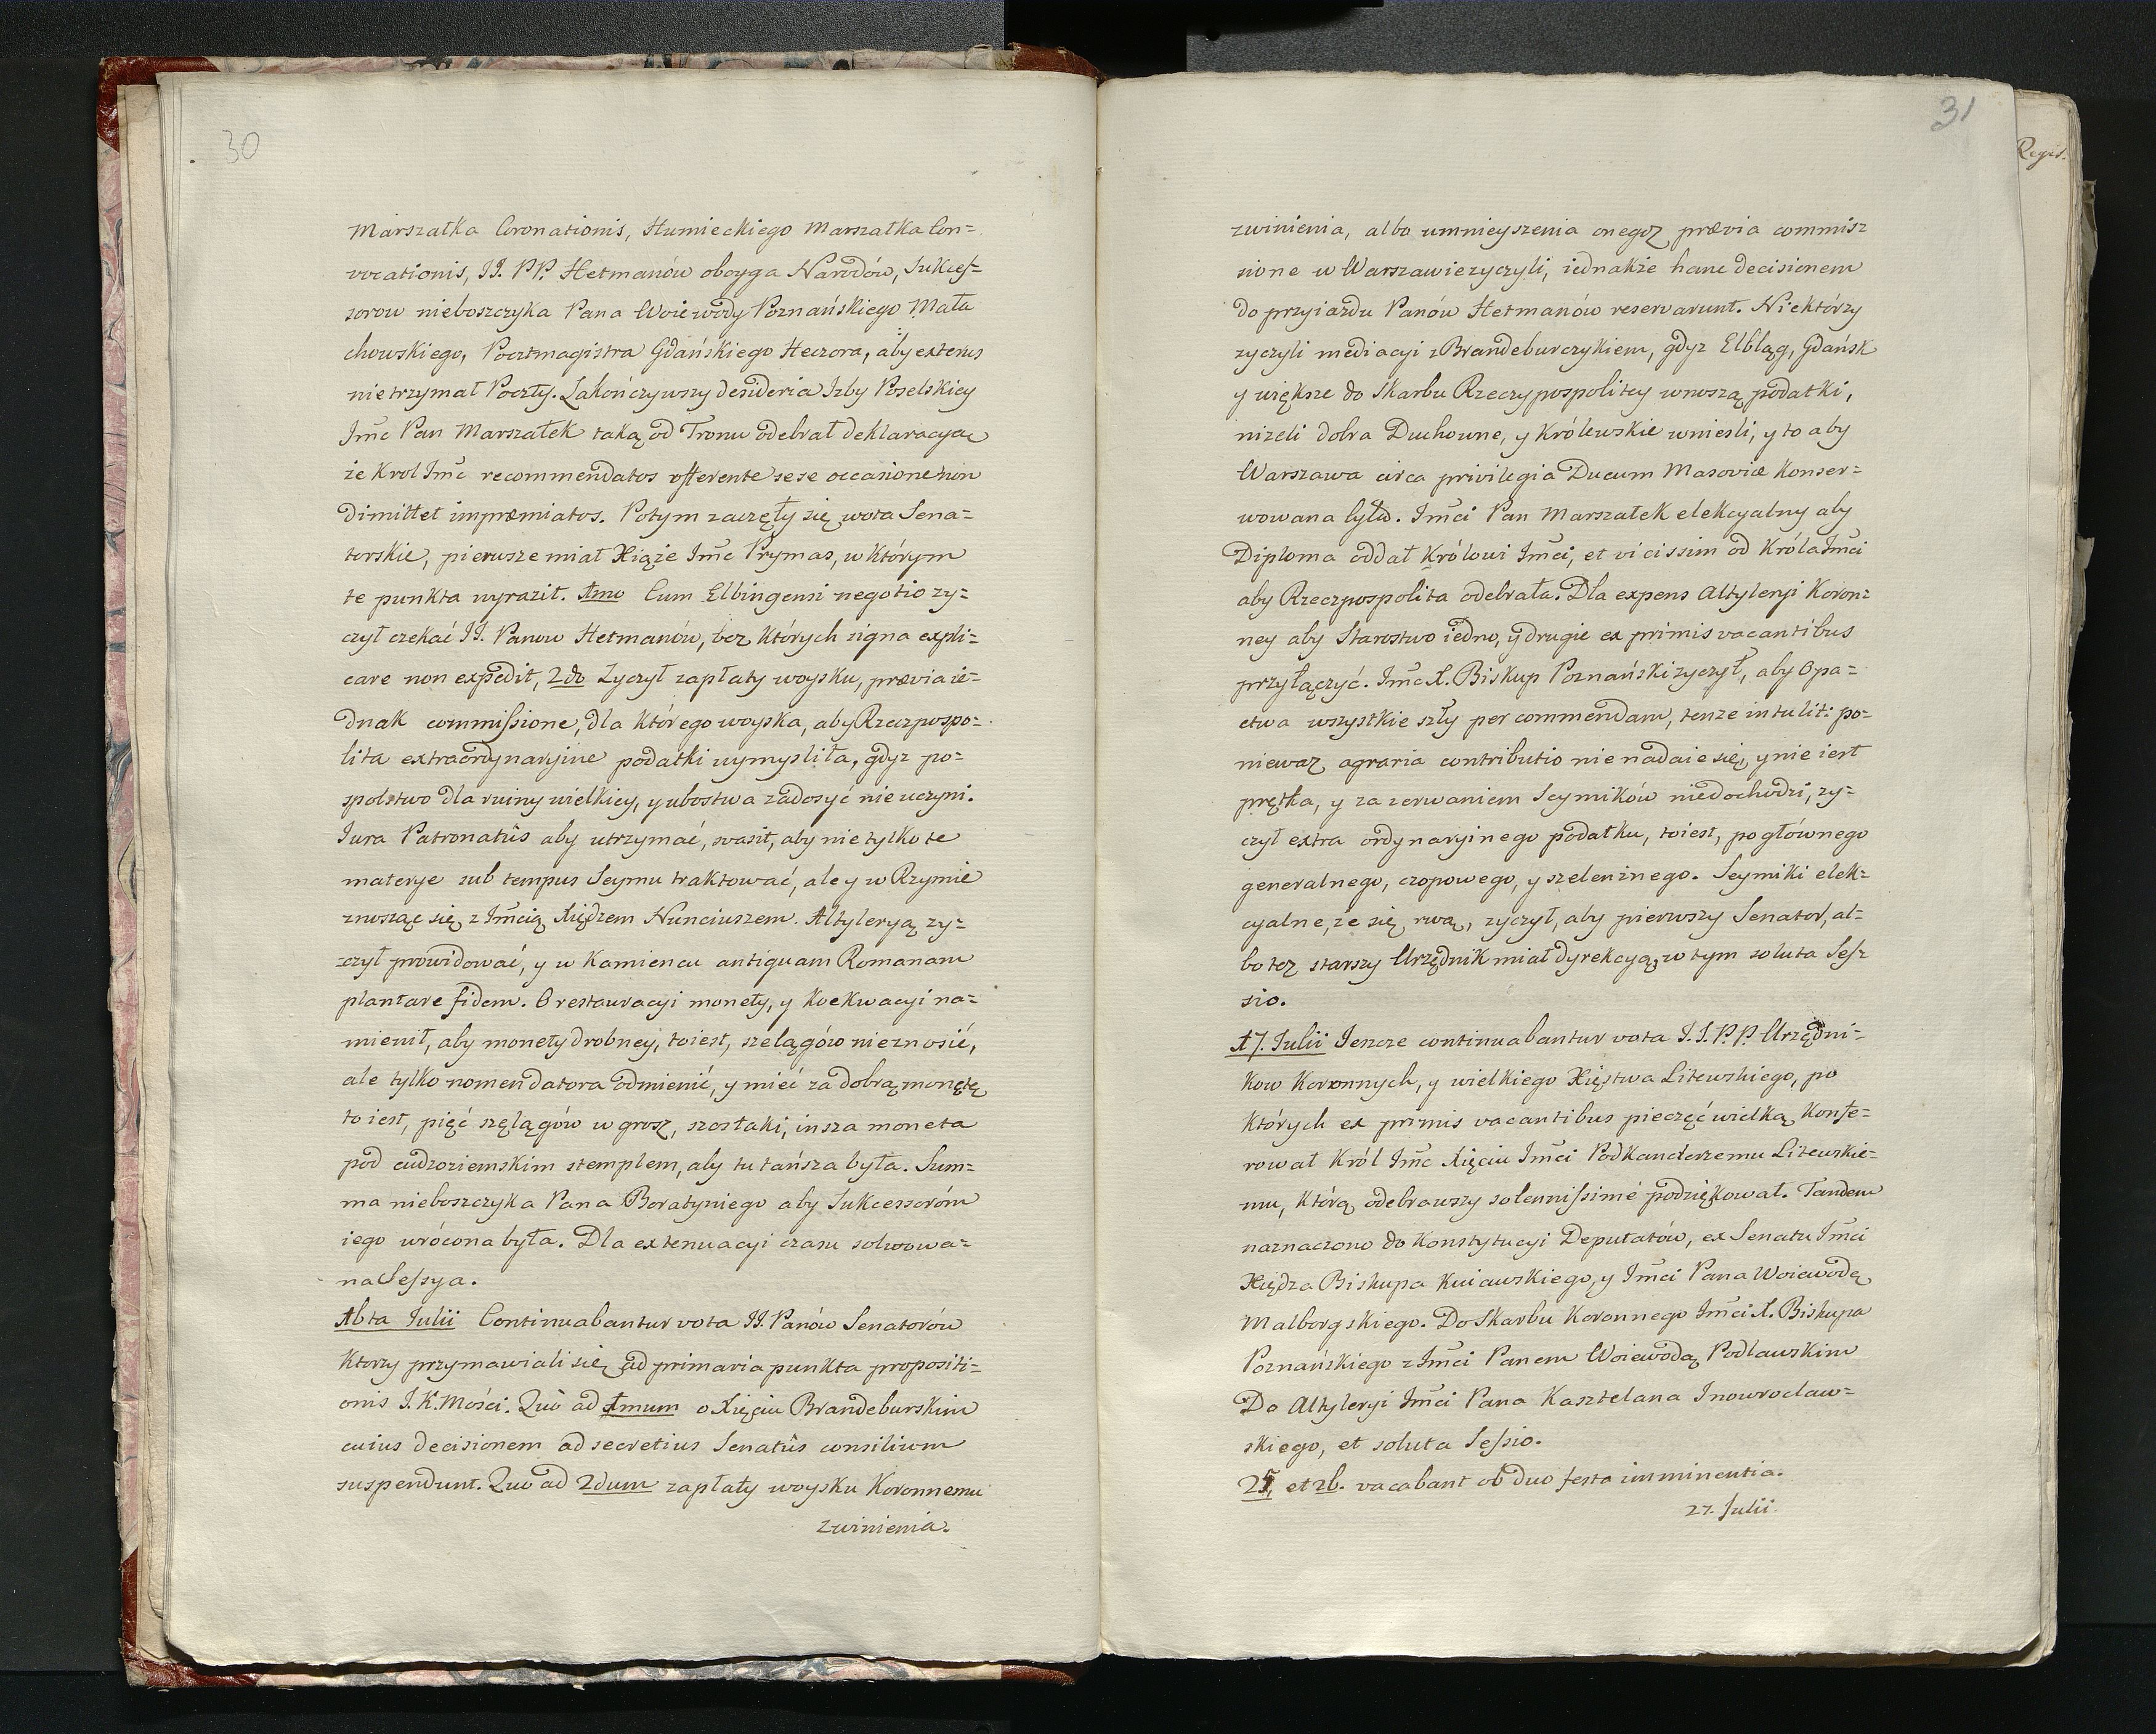 30
Marszałka Coronationis, Humieckiego Marszałka Con=
vocationis, JJ. PP. Hetmanów oboyga Narodów, Sukces=
sorow nieboszczyka Pana Woiewody Poznańskiego Mała
chowskiego, Pocztmagistra Gdańskiego Heczora, aby extenus
nie trzymał Poczty. Zakończywszy desideria Izby Poselskiey
Jmć Pan Marszałek taką od Tronu odebrał deklaracyą
że Krol Jmć recommendatos offerente sese occasione non
dimittet impræmiatos. Potym zaczęły się wota Sena=
torskie, pierwsze miał Xiąże Jmć Prymas, w którym
te punkta wyraził. 1mo Cum Elbingensi negotio zy=
czył czekać JJ. Panow Hetmanów, bez których signa expli=
care non expedit, 2do Zyczył zapłaty woysku, prævia ie=
dnak commissione, dla którego woyska, aby Rzeczpospo=
lita extraordynaryjne podatki wymysliła, gdyz po=
spolstwo dla ruiny wielkiey, y ubostwa zadosyć nie uczyni.
Jura Patronatûs aby utrzymać, svasit, aby nie tylko te
materye sub tempus Seymu traktować, ale y w Rzymie
znosząc się z Jmcią Xiędzem Nunciuszem. Altyleryą zy=
=czył prowidować, y w Kamiencu antiquam Romanam
plantare fidem. O restauracyi monety, y koekwacyi na=
mienił, aby monety drobney, toiest, szelągów nieznosić,
ale tylko nomendatora odmienić, y mieć za dobrą monętę
to iest, pięć szęlągów w grosz, szostaki, insza moneta
pod cudzoziemskim stemplem, aby tu tańsza była. Sum=
ma nieboszczyka Pana Boratyniego aby Sukcessoróm
iego wrócona była. Dla extenuacyi czasu solwowa=
na Sessya.
16ta Julii Continuabantur vota JJ. Panów Senatorów
Ktorzy przymawiali się ad primaria punkta propositi=
onis J. K. Mości. Quò ad 1mum o Xięciu Brandeburskim
cuius decisionem ad secretius Senatûs consilium
suspendunt. Quò ad 2dum zapłaty woysku Koronnemu
zwinienia.
31
zwinienia, albo umnieyszenia onegoz prævia commis=
sione w Warszawie zyczyli, iednakże hanc decisionem
do przyiazdu Panów Hetmanów reservarunt. Niektórzy
zyczyli mediacyi z Brandeburczykiem, gdyz Elbląg, Gdańsk
y większe do Skarbu Rzeczypospolitey wnoszą podatki,
nizeli dobra Duchowne, y Królewskie wniesli, y to aby
Warszawa circa privilegia Ducum Masoviæ konser=
wowana była. Jmci Pan Marszałek elekcyalny aby
Diploma oddał Królowi Jmci, et vicissim od Króla Jmci
aby Rzeczpospolita odebrała. Dla expens Altyleryi Koron=
ney aby Starostwo iedno, y drugie ex primis vacantibus
przyłączyć. Jmć X. Biskup Poznański zyczył, aby Opa=
ctwa wszystkie szły per commendam, tenze intulit: po=
niewaz agraria contributio nie nadaie się, y nie iest
prętka, y za zerwaniem Seymików niedochodzi, zy=
czył extra ordynaryinego podatku, toiest, pogłównego
generalnego, czopowego, y szelenżnego. Seymiki elek=
cyalne, ze się rwą, zyczył, aby pierwszy Senator, al=
bo tez starszy Urzędnik miał dyrekcyą, w tym soluta Ses=
sio.
17. Julii Jeszcze continuabantur vota J. J. P. P. Urzędni=
kow Koronnych, y wielkiego Xięstwa Litewskiego, po
których ex primis vacantibus pieczęć wielką konfe=
rował Król Jmć Xięciu Jmci Podkanclerzemu Litewskie=
mu, którą odebrawszy solennissimé podziękował. Tandem
naznaczono do Konstytucyi Deputatów, ex Senatu Jmci
Xiędza Biskupa Kuiawskiego, y Jmci Pana Woiewodę
Malborgskiego. Do Skarbu Koronnego Jmci X. Biskupa
Poznańskiego z Jmci Panem Woiewodą Podlawskim
Do Altyleryi Jmci Pana Kasztelana Jnowrocław=
skiego, et soluta Sessio.
25, et 26. vacabant ob duo festa imminentia.
27. Julii.